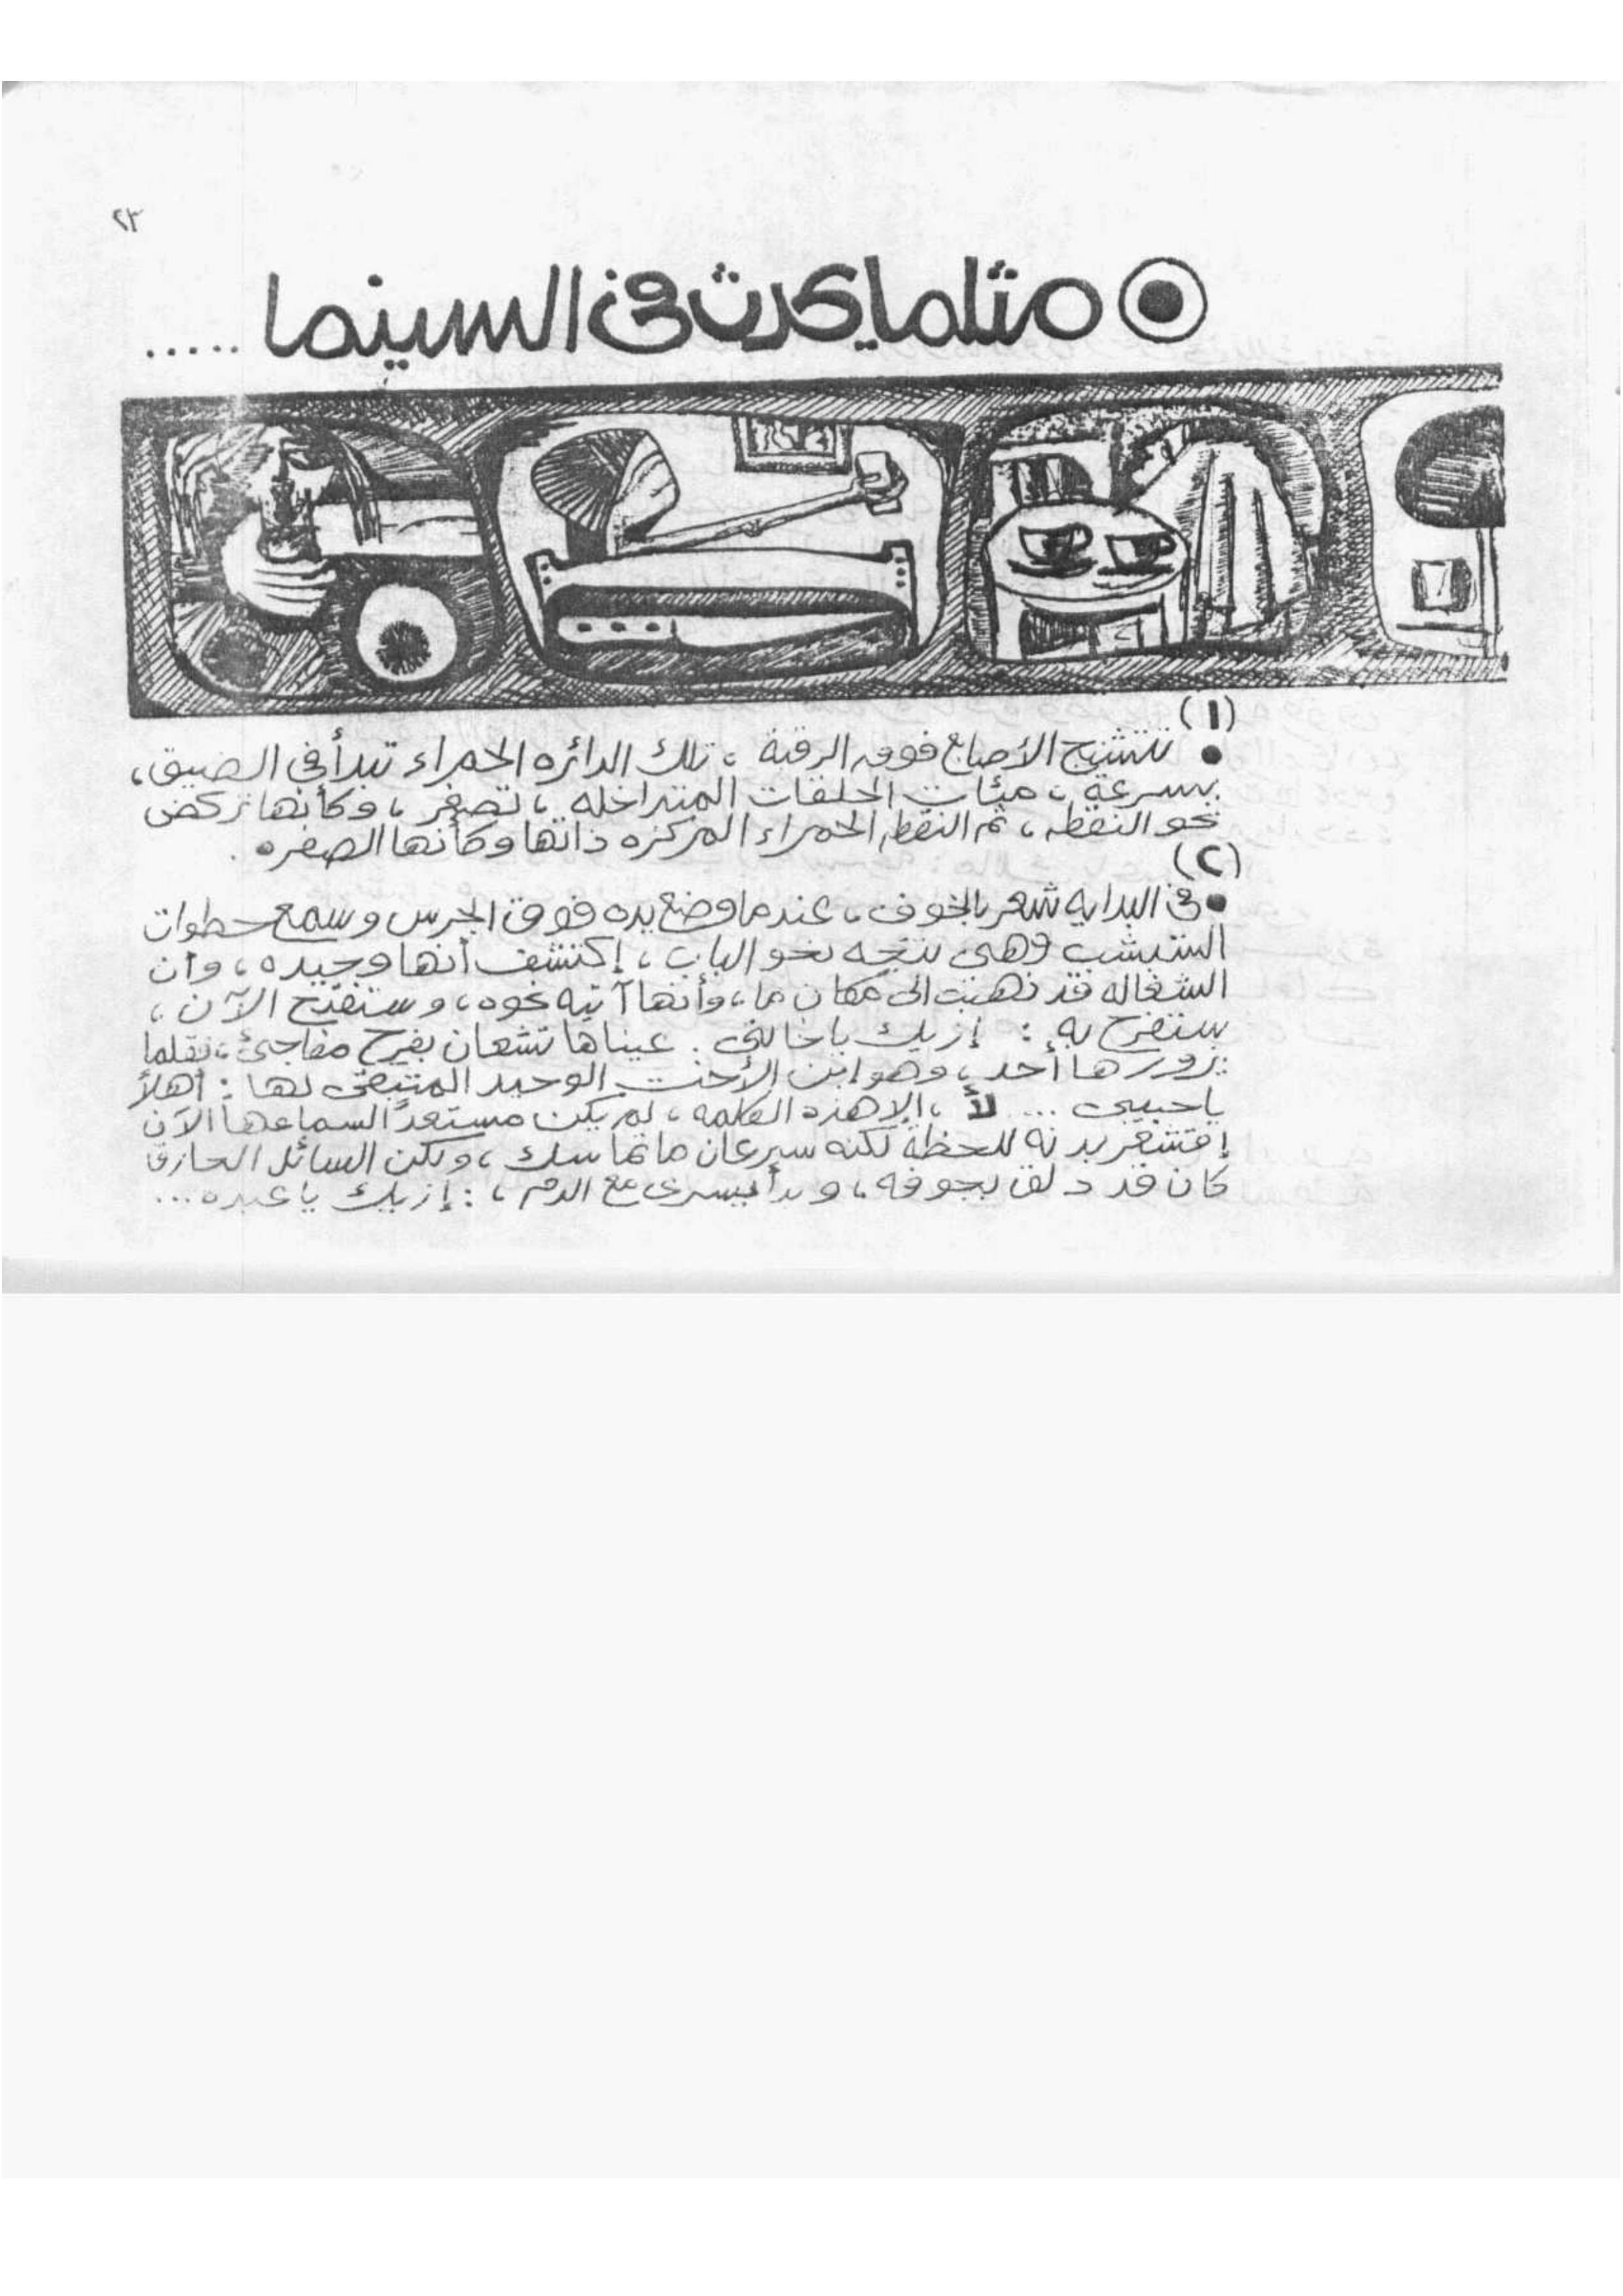 ٢٣
مثلما يحدث فى السينما .....
(١)
• تتشنج الأصابع فوق الرقبة ، تلك الدائره الحمراء تبدأ في الضيق ،
بسرعة ، مئات الحلقات المتداخله ، تصغر ، وكأنها تركض
نحو النقطه ، ثم النقطه الحمراء المركزه ذاتها وكأنها الصفره .
(٢)
• فى البدايه شعر بالخوف ، عندما وضع يده فوق الجرس وسمع خطوات
الشبشب وهى تتجه نحو الباب ، إكتشف أنها وحيده ، وأن
الشغاله قد ذهبت الى مكان ما ، وأنها آتيه نحوه ، وستفتح الآن ،
ستفرح به : إزيك ياخالتى . عيناها تشعان بفرح مفاجئ ، فقلما
يزورها أحد ، وهو ابن الأخت الوحيد المتبقى لها : أهلاً
ياحبيبى .... لأ ، إلا هذه الكلمه ، لم يكن مستعداً لسماعها الآن
إقشعر بدنه للحظة لكنه سرعان ماتماسك ، ولكن السائل الحارق
كان قد دلق بجوفه ، وبدأ يسرى مع الدم ، : إزيك ياعبده ...